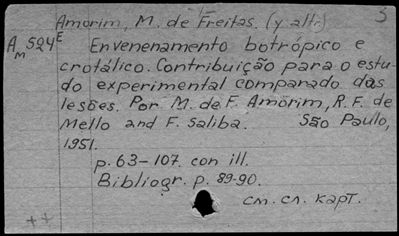 Amorim, M. de Freitas. (y altr.) 3
Am 524E Envenenamento botrópico e
crotálico. Contribuição para o estu-
do experimental comparado das
lesões. Por M. de F. Amorim, R. F. de
Mello and F. Saliba. São Paulo,
1951.
p. 63-107. con ill.
Bibliogr. p. 89-90.
см. сл. карт.
++